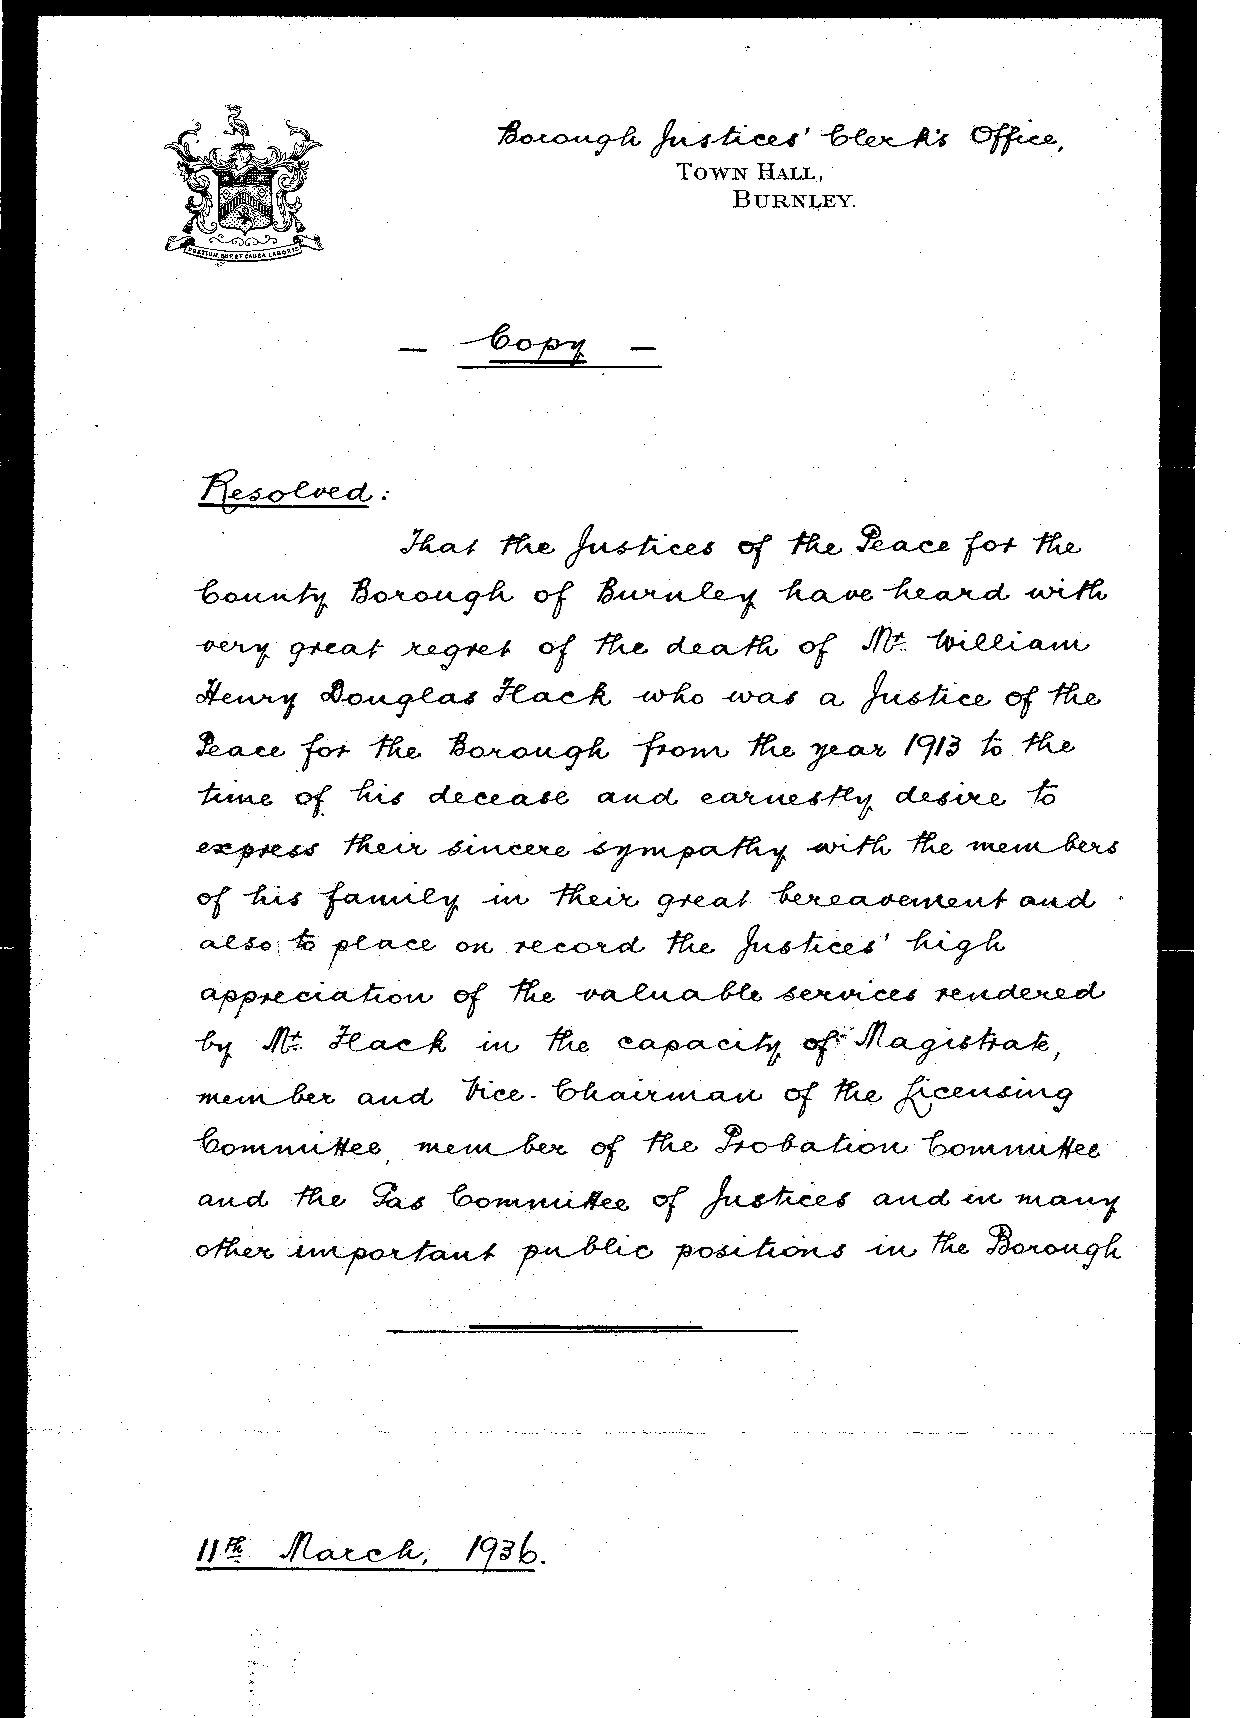 Borough Justices' Clerk's Office,
TOWN HALL,
BURNLEY.
PRETIUMQUE ET CAUSA LABORIS
- Copy -
Resolved:
That the Justices of the Peace for the
County Borough of Burnley have heard with
very great regret of the death of Mr. William
Henry Douglas Flack who was a Justice of the
Peace for the Borough from the year 1913 to the
time of his decease and earnestly desire to
express their sincere sympathy with the members
of his family in their great bereavement and
also to place on record the Justices' high
appreciation of the valuable services rendered
by Mr. Flack in the capacity of Magistrate,
member and Vice-Chairman of the Licensing
Committee, member of the Probation Committee
and the Gas Committee of Justices and in many
other important public positions in the Borough
11th March, 1936.